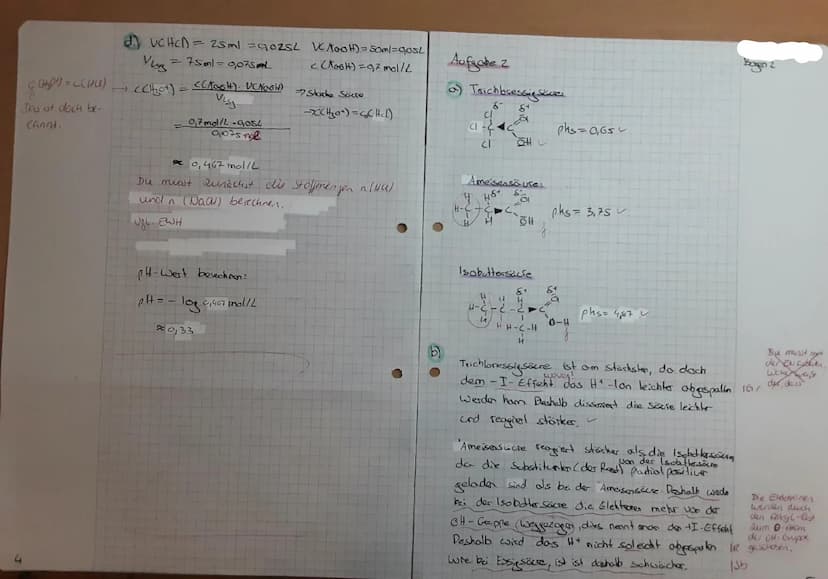 d) V(HCl) = 25ml = 0,025L V(NaOH) = 50ml = 0,05L
VLsg = 75ml = 0,075L c(NaOH) = 0,7mol/L
c(H3O+) = c(HCl)
Das ist doch be-
kannt.
→ c(H3O+) = c(NaOH) · V(NaOH) / VLsg → starke Säure
→ c(H3O+) = c0(HCl)
= 0,7mol/L · 0,05L / 0,075
≈ 0,467mol/L
Du musst zunächst die Stoffmengen n(HCl)
und n(NaOH) berechnen.
vgl. EWH
pH-Wert berechnen:
pH = - log 0,467mol/L
≈ 0,33
4
Bogen 2
Aufgabe 2
a) Trichloressigsäure
δ- δ+
Cl O
Cl-C C pks = 0,65 ✓
Cl OH
Ameisensäure:
H H δ+ δ-
H-C C C O pks = 3,75 ✓
H H OH
f
Isobuttersäure
δ+ δ+
H-C-C-C C O pks = 4,87 ✓
O-H
H-C-H
H
f
b)
Trichloressigsäure ist am stärksten, da doch
dem -I-Effekt das H+-Ion leichter abgespalten
werden kann. Deshalb dissoziiert die Säure leichter
und reagiert stärker. ✓
Du musst
Ameisensäure reagiert stärker als die Isobuttersäure
von der Isobuttersäure
da die Substituenten (der Rest) partial positiver
geladen sind als bei der Ameisensäure. Deshalb werde
bei der Isobuttersäure die Elektronen mehr von der
OH-Gruppe weggezogen, dies nennt man den +I-Effekt
Deshalb wird das H+ nicht so leicht abgespalten
wie bei Essigsäure, ist ist deshalb schwächer.
Die Elektronen
werden durch
den Alkyl-Rest
zum O-Atom
der OH-Gruppe
geschoben.